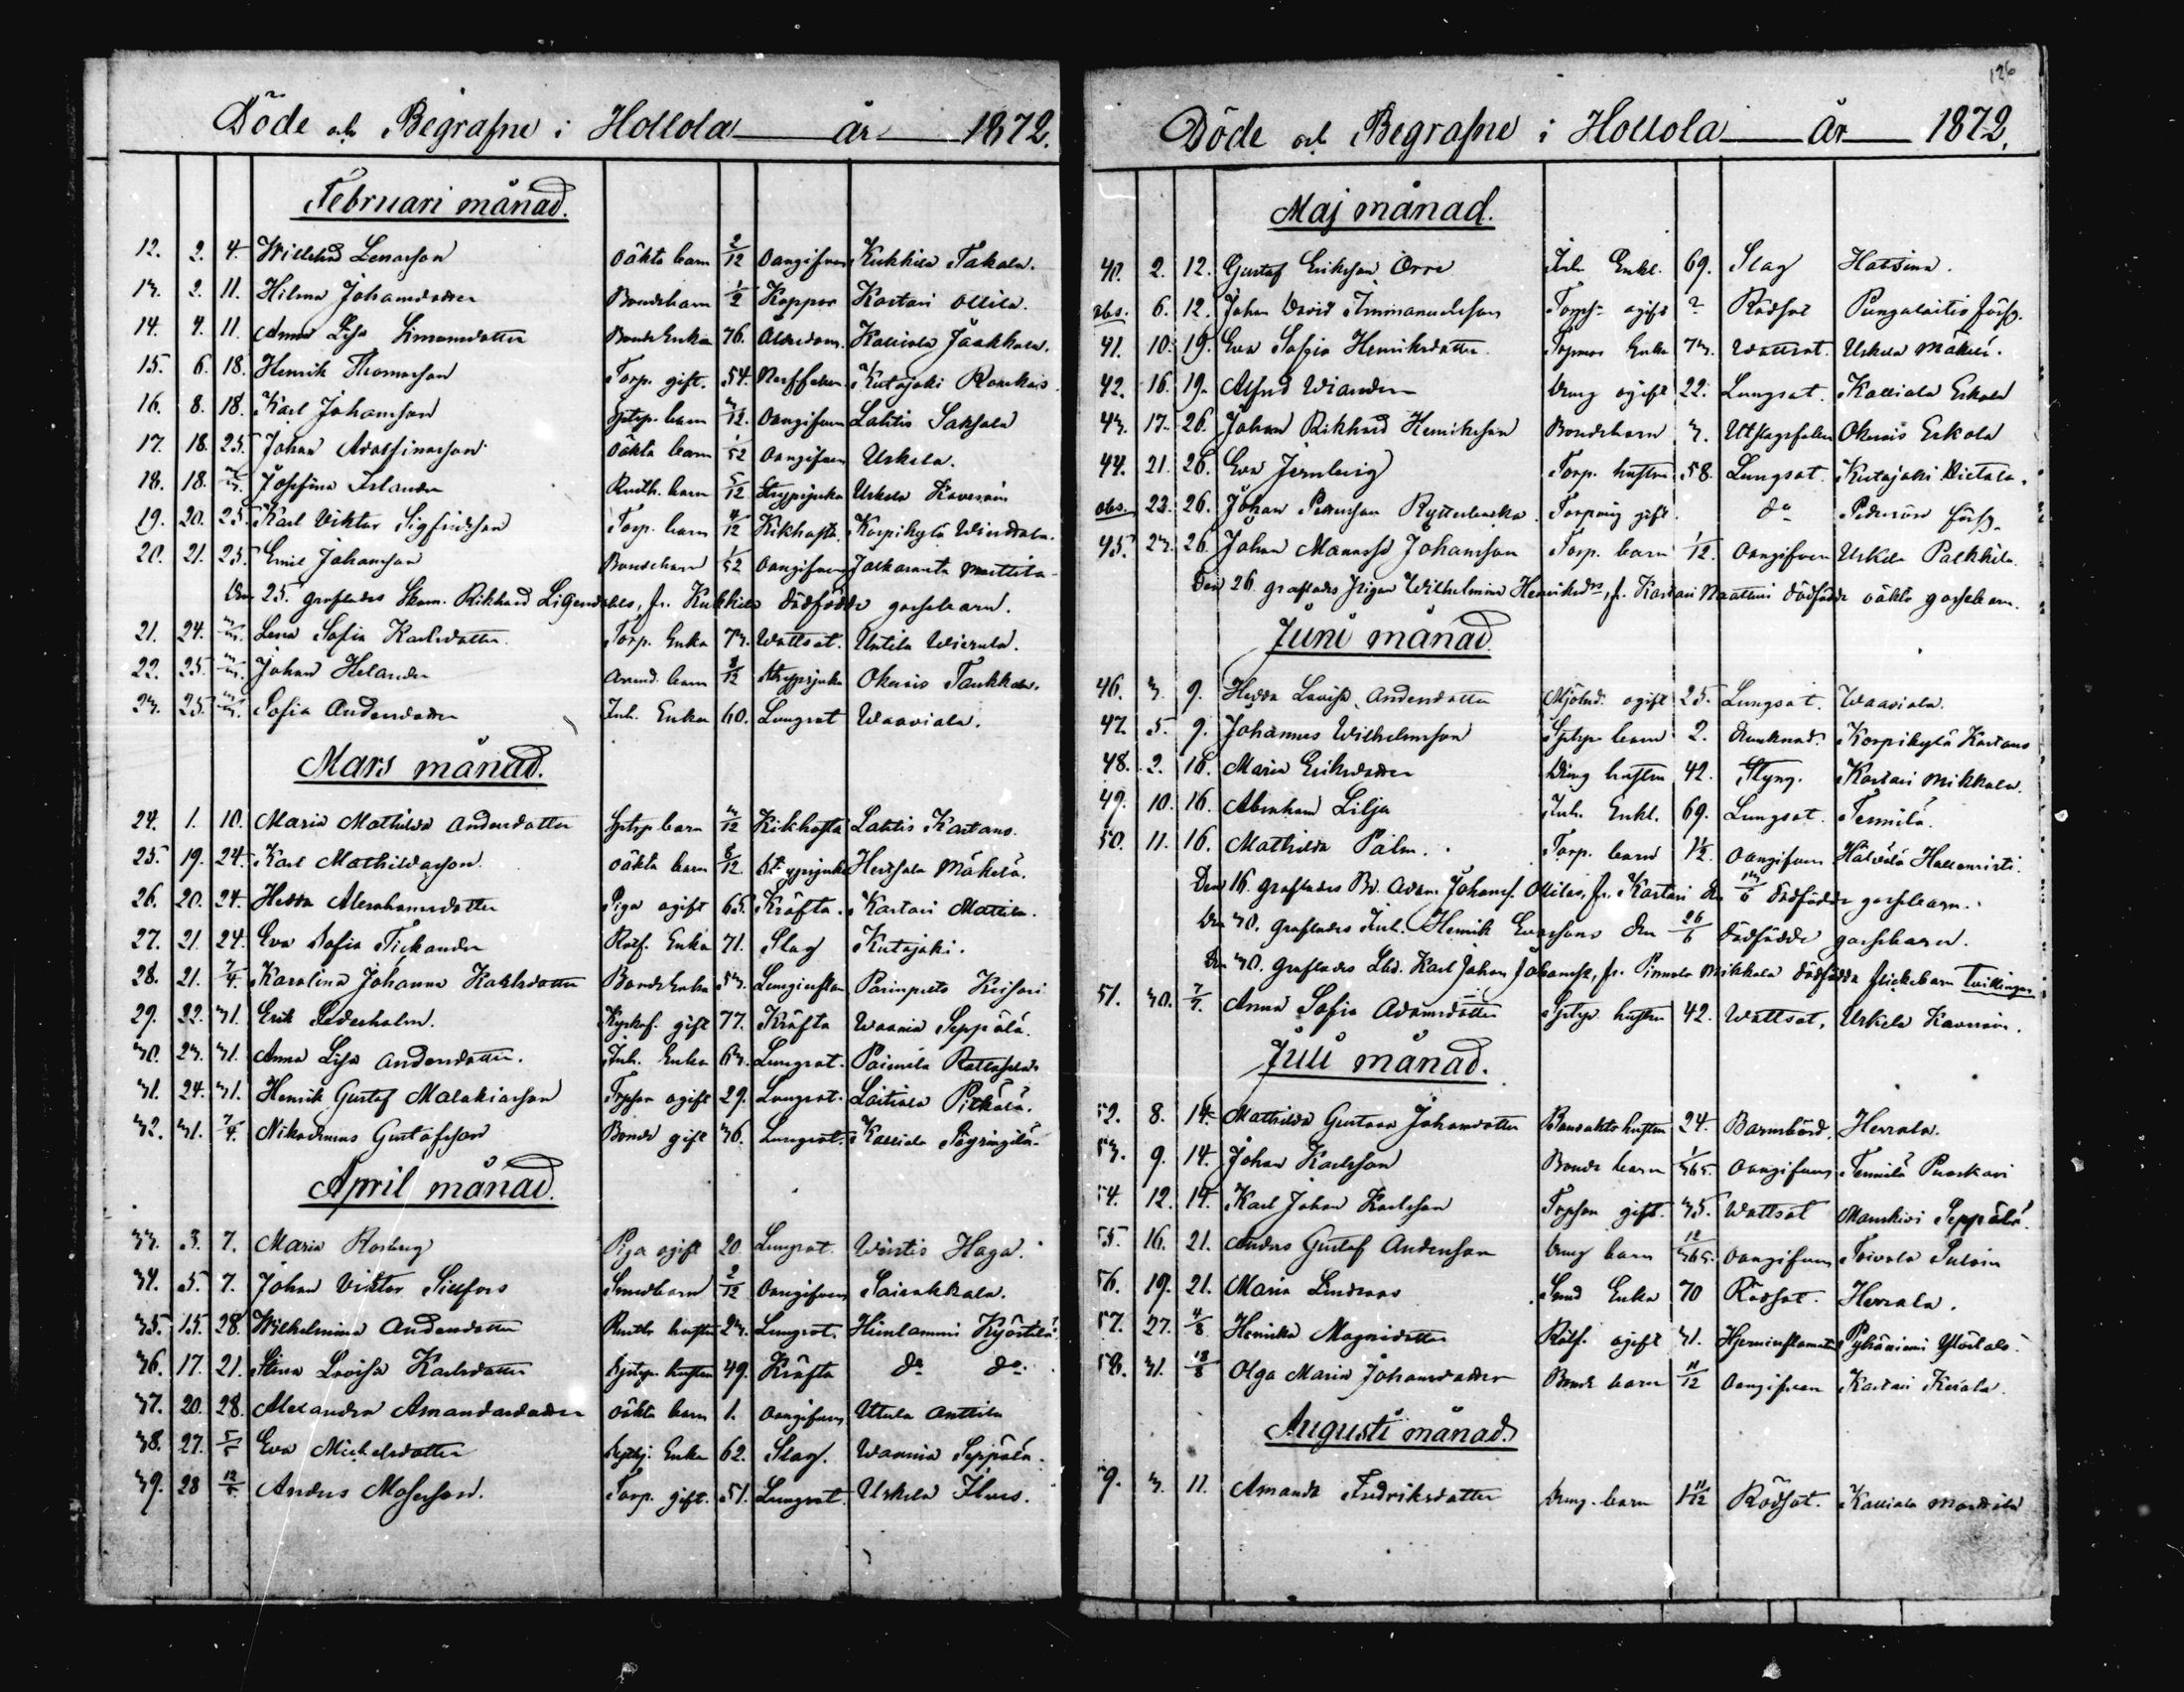 Döde och Begrafne i Hollola år 1872.
Februari månad.
12. 2. 4. Willehad Lenasson oäkta barn 2/12 Oangifven Kukkila Takala.
13. 2. 11. Hilma Johansdotter Bondebarn 1/2 Koppor Kastari Ollila.
14. 4. 11. Anna Lisa Simonsdotter Bonde Enka 76. Ålderdom. Kalliola Jaakkola.
15. 6. 18. Henrik Thomasson Torp. gift. 54. Nerffeber Kutajoki
16. 8. 18. Karl Johansson barn 3/12. Oangifven Lahtis Saksala
17. 18. 25. Johan oäkta barn 1/52 Oangifven Uskila.
18. 18. 3/3. Josefina Islander barn 5/12 Strypsjuka Uskila
19. 20. 25. Karl Viktor Sigfridsson Torp. barn 4/12 Kikhosta. Korpikylä
20. 21. 25. Emil Johansson Bondebarn 1/52 Oangifven Jalkaranta Mattila
Den 25. graflades Rikhard fr. Kukkila dödfödde gossebarn.
21. 24. 3/3. Lena Sofia Karlsdotter Torp. Enka 73. Wattsot. Untila Wierula.
22. 25. 3/3. Johan Helander barn 8/12 Strypsjuka Okerois
23. 25. 3/3. Sofia Andersdotter Inh. Enka 60. Lungsot Waaviala.
Mars månad.
24. 1. 10. Maria Mathilda Andersdotter barn 3/12 Kikhosta Lahtis Kartano.
25. 19. 24. Karl Mathildasson oäkta barn 8/12 Strypsjuka Hersala Mäkelä.
26. 20. 24. Hedda Abrahamsdotter Piga ogift 65. Kräfta. Kastari Mattila.
27. 21. 24. Eva Sofia Tickander Rotf. Enka 71. Slag Kutajoki.
28. 21. 7/4. Karolina Johanna Karlsdotter Bonde Enka 53. Parinpelto
29. 22. 31. Erik Sederholm. gift 77. Kräfta Waania Seppälä.
30. 23. 31. Anna Lisa Andersdotter. Inh. Enka 63. Lungsot. Paimela
31. 24. 31. Henrik Gustaf Malakiasson ogift 29. Lungsot. Laitiala Pitkälä.
32. 31. 7/4. Nikodemus Gustafsson Bonde gift 36. Lungsot. Kalliola
April månad.
33. 3. 7. Maria Rosberg Piga ogift 20. Lungsot. Haga.
34. 5. 7. Johan Viktor Sillfors Smedbarn 2/12 Oangifven Sairakkala.
35. 15. 28. Wilhelmina Andersdotter hustru 23. Lungsot. Himlammi Kyöstilä.
36. 17. 21. Stina Lovisa Karlsdotter hustru 49. Kräfta do do.
37. 20. 28. Alexandra Amandasdotter oäkta barn 1. Oangifven Utula Anttila
38. 27. 5/5 Eva Michelsdotter Enka 62. Slag. Waania Seppälä.
39. 28 12/5. Anders Mosesson. Torp. gift. 51. Lungsot. Uskila
126
Döde och Begrafne i Hollola År 1872.
Maj månad.
40. 2. 12. Gustaf Eriksson Orre Inh. Enkl. 69. Slag Hatsina.
obs. 6. 12. Johan David Immanuelsson ogift ? Rödsot Pungalaitio förs.
41. 10. 19. Eva Sofia Henriksdotter. Enka 73. Wattsot. Uskila Mäkelä.
42. 16. 19. Alfred Wiander Dreng ogift 22. Lungsot. Kalliola Erkola
43. 17. 26. Johan Rikhard Henriksson Bondebarn 3. Utslagsfeber Okerois Erkola
44. 21. 26. Eva Jernberg Torp. hustru 58. Lungsot. Kutajoki Dietala.
obs. 23. 26. Johan Petersson gift do Pedersöre förs.
45. 23. 26. Johan Manasse Johansson Torp. barn 1/12. Oangifven Uskila
Den 26 graflades Pigan Wilhelmina Henriksdr, fr. Kastari dödfödde oäkta gossebarn.
Juni månad.
46. 3. 9. Hedda Lovisa Andersdotter Mjölnd. ogift 25. Lungsot. Waaviala.
47. 5. 9. Johannes Wilhelmsson barn 2. Drunknad. Korpikylä Kartano
48. 2. 16. Maria Eriksdotter Dreng hustru 42. Styng. Kastari Mikkola.
49. 10. 16. Abraham Lilja Inh. Enkl. 69. Lungsot. Tennilä.
50. 11. 16. Mathilda Palm. Torp. barn 1½. Oangifven Hälvälä
Den 16. graflades Bd. Adam Johanss. Ollilas, fr. Kastari den 13/6 dödfödde gossebarn.
Den 30. graflades Inh. Henrik den 26/6 dödfödde gossebarn.
Den 30. graflades Karl Johan Johanss., fr. Mikkola dödfödda flickebarn tvillingar
51. 30. 7/7. Anna Sofia Adamsdotter hustru 42. Wattsot. Uskila
Juli månad.
52. 8. 14. Mathilda Gustava Johansdotter hustru 24. Barnsbörd. Herrala.
53. 9. 14. Johan Karlsson Bonde barn 1/365. Oangifven Tennilä
54. 12. 14. Karl Johan Karlsson gift. 35. Wattsot Manskivi Seppälä.
55. 16. 21. Anders Gustaf Andersson Dreng barn 12/365. Oangifven Toivola
56. 19. 21. Maria Lindroos Smed Enka 70 Rödsot. Herrala.
57. 27. 4/8 Henrika Magnidotter ogift 31. Hjerninflammation Pyhäniemi
58. 31. 18/8 Olga Maria Johansdotter Bonde barn 11/12 Oangifven Kastari
Augusti månad.
59. 3. 11. Amanda Fredriksdotter Dreng. barn 1 11/12 Rödsot. Kalliola